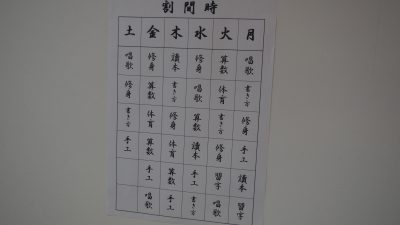 時間割
月 唱歌 書き方 修身 手工 讀本 習字
火 算数 体育 書き方 算数 習字 唱歌
水 修身 唱歌 算数 讀本 手工 書き方
木 讀本 書き方 修身 体育 算数 手工
金 修身 算数 体育 算数 手工 唱歌
土 唱歌 修身 書き方 手工